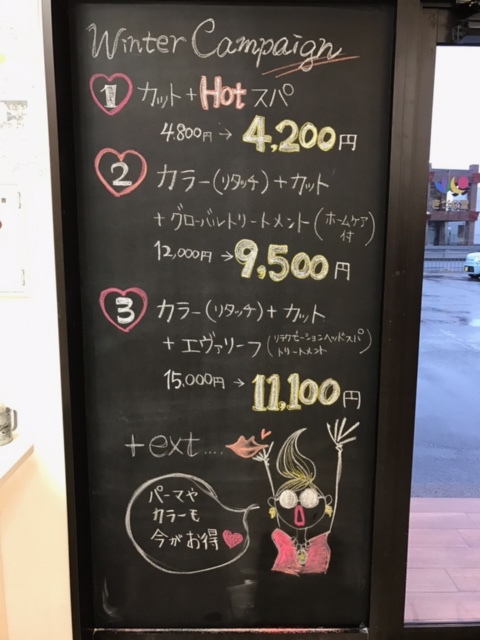 Winter Campaign
1 カット+Hotスパ
4.800円→4,200円
2 カラー(リタッチ)+カット
+グローバルトリートメント(ホームケア付)
12,000円→9,500円
3 カラー(リタッチ)+カット
+エヴァリーフ(リラクゼーションヘッドスパ
トリートメント)
15,000円→11,100円
+ext....
パーマや
カラーも
今がお得